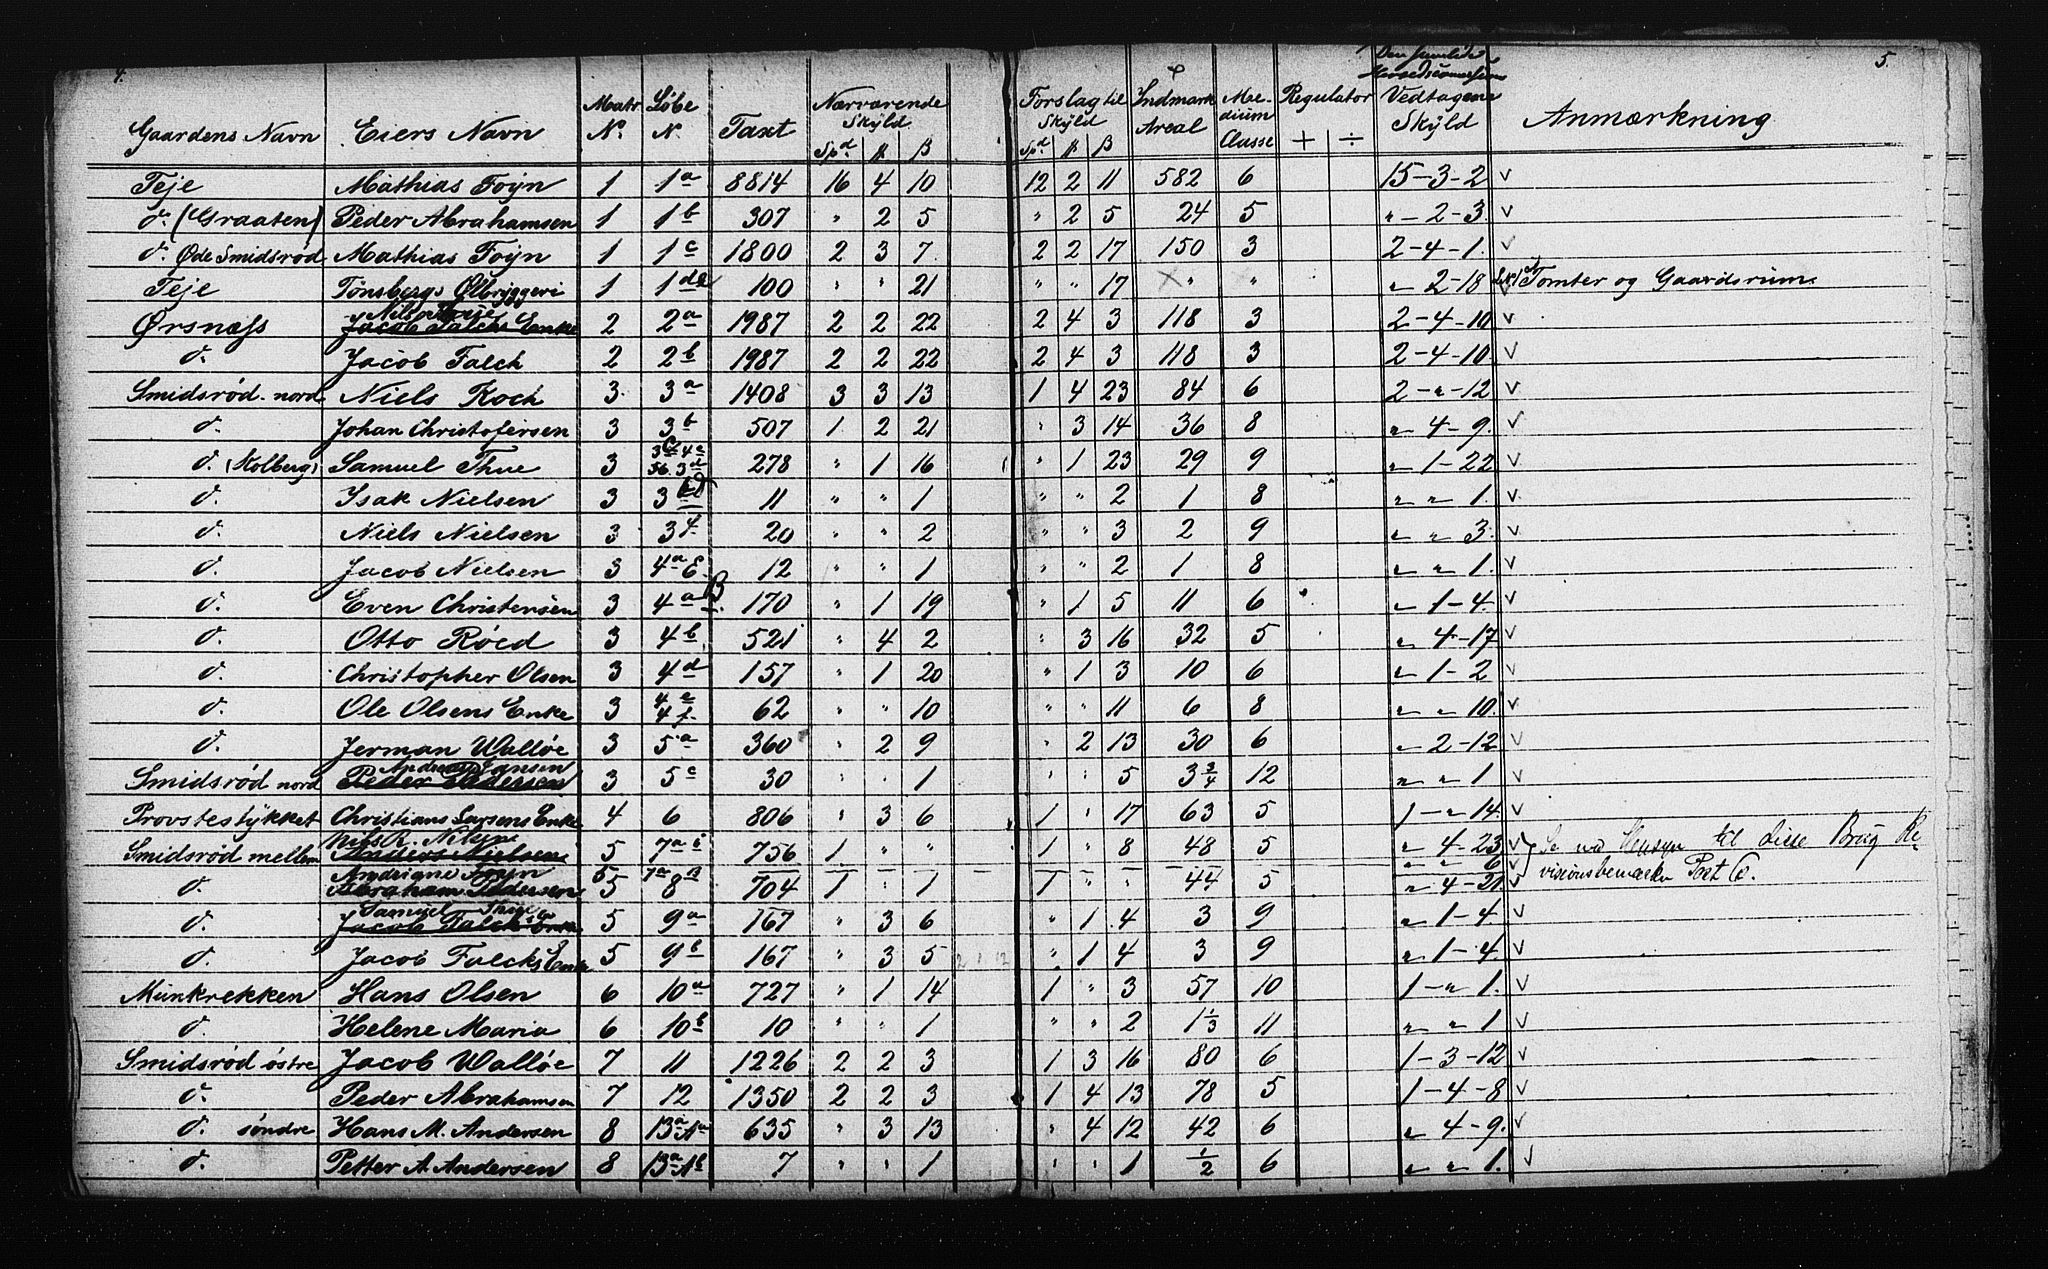 4. 5.
Gaardens Navn | Eiers Navn | Matr N. | Løbe N. | Taxt | Nærværende Skyld Spd. | ſs | β | Forslag til Skyld Spd. | ſs | β | Indmark Areal | Medium Classe | Regulator + | ÷ | Den samlede Herredscommissions Vedtagene Skyld | Anmærkning
Teje | Mathias Foyn | 1 | 1a | 8814 | 16 | 4 | 10 | 12 | 2 | 11 | 582 | 6 | 15-3-2 v
d. (Graaten) | Peder Abrahamsen | 1 | 1b | 307 | " | 2 | 5 | " | 2 | 5 | 24 | 5 | "-2-3. v
d. Øde Smidsrød | Mathias Foyn | 1 | 1c | 1800 | 2 | 3 | 7 | 2 | 2 | 17 | 150 | 3 | 2-4-1. v
Teje | Tønsbergs Ølbryggeri | 1 | 1d | 100 | " | " | 21 | " | " | 17 | " | " | "-2-18 v | Tomter og Gaardsrum.
Ørsnæss | Jacob Falchs Enke | 2 | 2a | 1987 | 2 | 2 | 22 | 2 | 4 | 3 | 118 | 3 | 2-4-10 v
d. | Jacob Falch | 2 | 2b | 1987 | 2 | 2 | 22 | 2 | 4 | 3 | 118 | 3 | 2-4-10. v
Smidsrød nord | Niels Koch | 3 | 3a | 1408 | 3 | 3 | 13 | 1 | 4 | 23 | 84 | 6 | 2-"-12 v
d. | Johan Christofersen | 3 | 3b | 507 | 1 | 2 | 21 | " | 3 | 14 | 36 | 8 | "-4-9. v
d. (Kolberg) | Samuel Thue | 3 | 278 | " | 1 | 16 | " | 1 | 23 | 29 | 9 | "-1-22 v
d. | Isak Nielsen | 3 | 3 | 11 | " | " | 1 | " | " | 2 | 1 | 8 | " " 1. v
d. | Niels Nielsen | 3 | 3f | 20 | " | " | 2 | " | " | 3 | 2 | 9 | " " 3. v
d. | Jacob Nielsen | 3 | 4a E. | 12 | " | " | 1 | " | " | 2 | 1 | 8 | " " 1. v
d. | Even Christensen | 3 | 4a B. | 170 | " | 1 | 19 | " | 1 | 5 | 11 | 6 | "-1-4. v
d. | Otto Röed | 3 | 4b | 521 | " | 4 | 2 | " | 3 | 16 | 32 | 5 | "-4-17 v
d. | Christopher Olsen | 3 | 4d | 157 | " | 1 | 20 | " | 1 | 3 | 10 | 6 | "-1-2 v
d. | Ole Olsens Enke | 3 | 4e 4f. | 62 | " | " | 10 | " | " | 11 | 6 | 8 | " " 10. v
d. | Jerman Wallöe | 3 | 5a | 360 | " | 2 | 9 | " | 2 | 13 | 30 | 6 | "-2-12 v
Andreas Jansen
Smidsrød nord | Peder Pedersen | 3 | 5c | 30 | " | " | 1 | " | " | 5 | 3 3/4 | 12 | " " 1 v
Provstestykket | Christians Larsens Enke | 4 | 6 | 806 | " | 3 | 6 | 1 | " | 17 | 63 | 5 | 1-"-14. v
Nils R. Nilsen
Smidsrød mellem | Anders Nielsen | 5 | 7a | 756 | 1 | " | " | 1 | " | 8 | 48 | 5 | "-4-23 v | Se ved Hensyn til disse Brug Re-
" " 6 v | visionsbemærkn Post 6.
d. | Abraham Pedersen | 5 | 8 | 704 | 1 | " | 1 | 1 | " | " | 44 | 5 | "-4-21. v
Samuel Thue
d. | Jacob Falchs Enke | 5 | 9a | 167 | " | 3 | 6 | " | 1 | 4 | 3 | 9 | "-1-4. v
d. | Jacob Falchs Enke | 5 | 9b | 167 | " | 3 | 5 | " | 1 | 4 | 3 | 9 | "-1-4. v
Munkrekken | Hans Olsen | 6 | 10a | 727 | " | 1 | 14 | 1 | " | 3 | 57 | 10 | 1-"-1. v
d. | Helene Maria | 6 | 10b | 10 | " | " | 1 | " | " | 2 | 1 1/3 | 11 | " " 1 v
Smidsrød østre | Jacob Wallöe | 7 | 11 | 1226 | 2 | 2 | 3 | 1 | 3 | 16 | 80 | 6 | 1-3-12 v
d. | Peder Abrahamsen | 7 | 12 | 1350 | 2 | 2 | 3 | 1 | 4 | 13 | 78 | 5 | 1-4-8 v
d. søndre | Hans M. Andersen | 8 | 13a | 635 | " | 3 | 13 | " | 4 | 12 | 42 | 6 | "-4-9. v
d. | Petter A. Andersen | 8 | 13a | 7 | " | " | 1 | " | " | 1 | 1/2 | 6 | " " 1. v